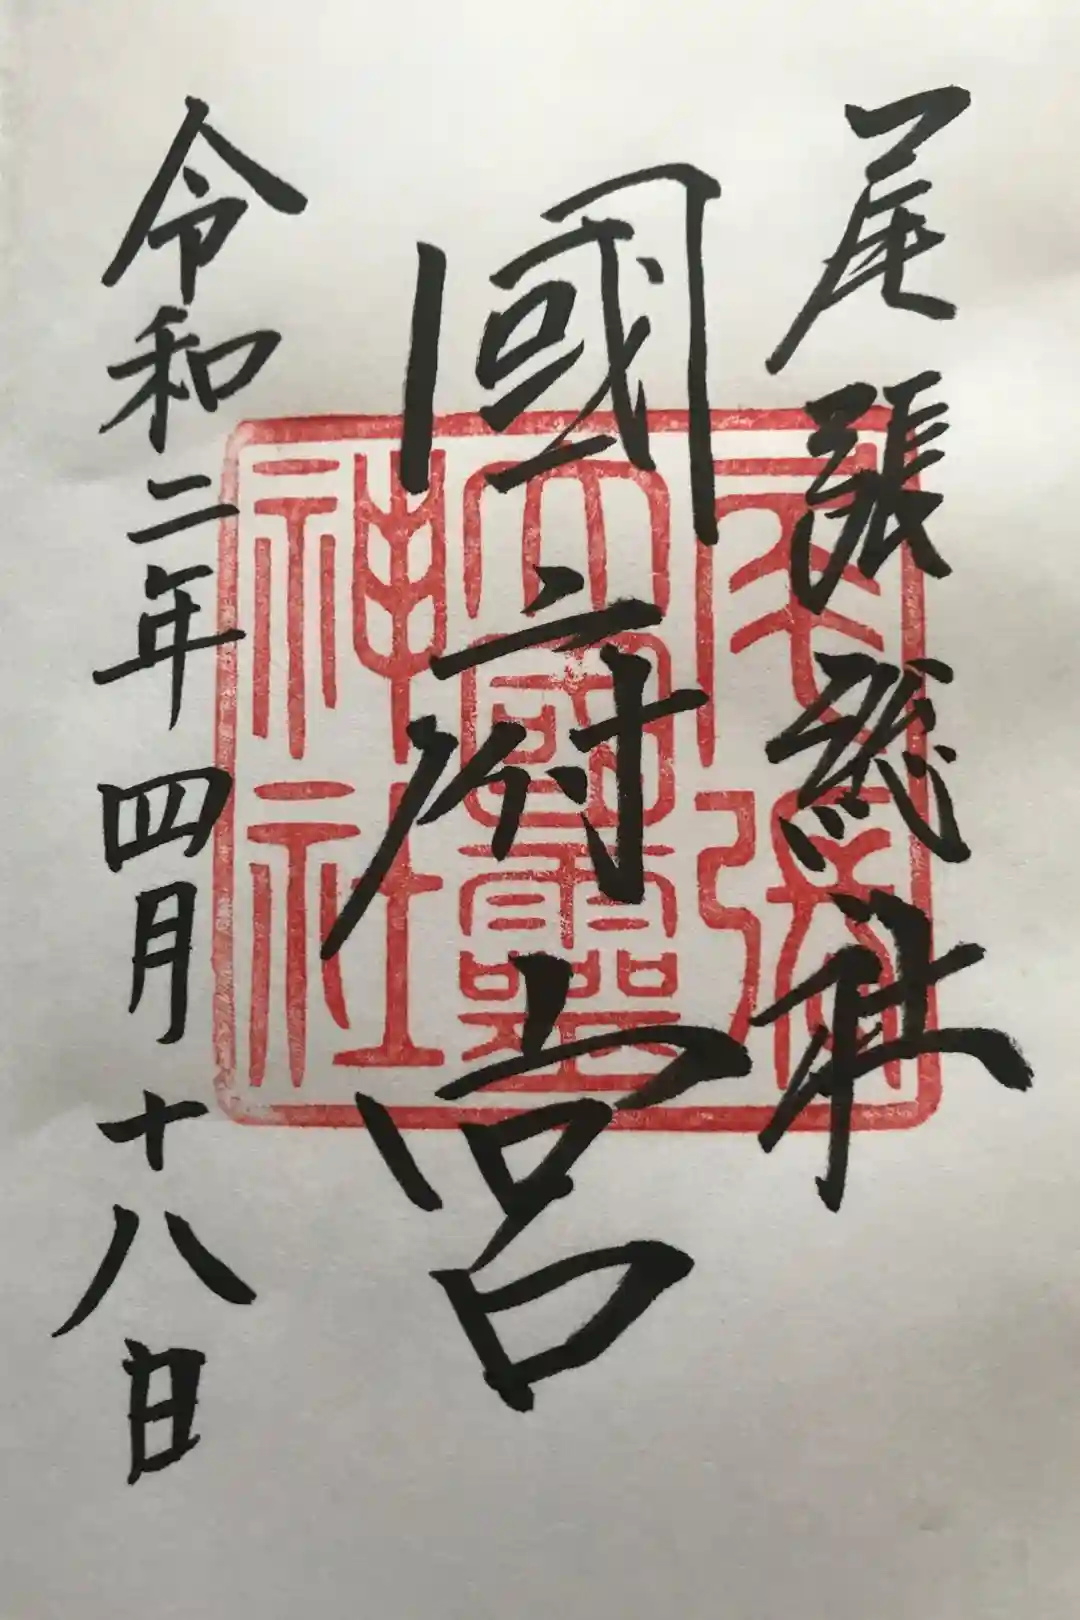 尾張総社
國府宮
令和二年四月十八日
尾張大國霊神社